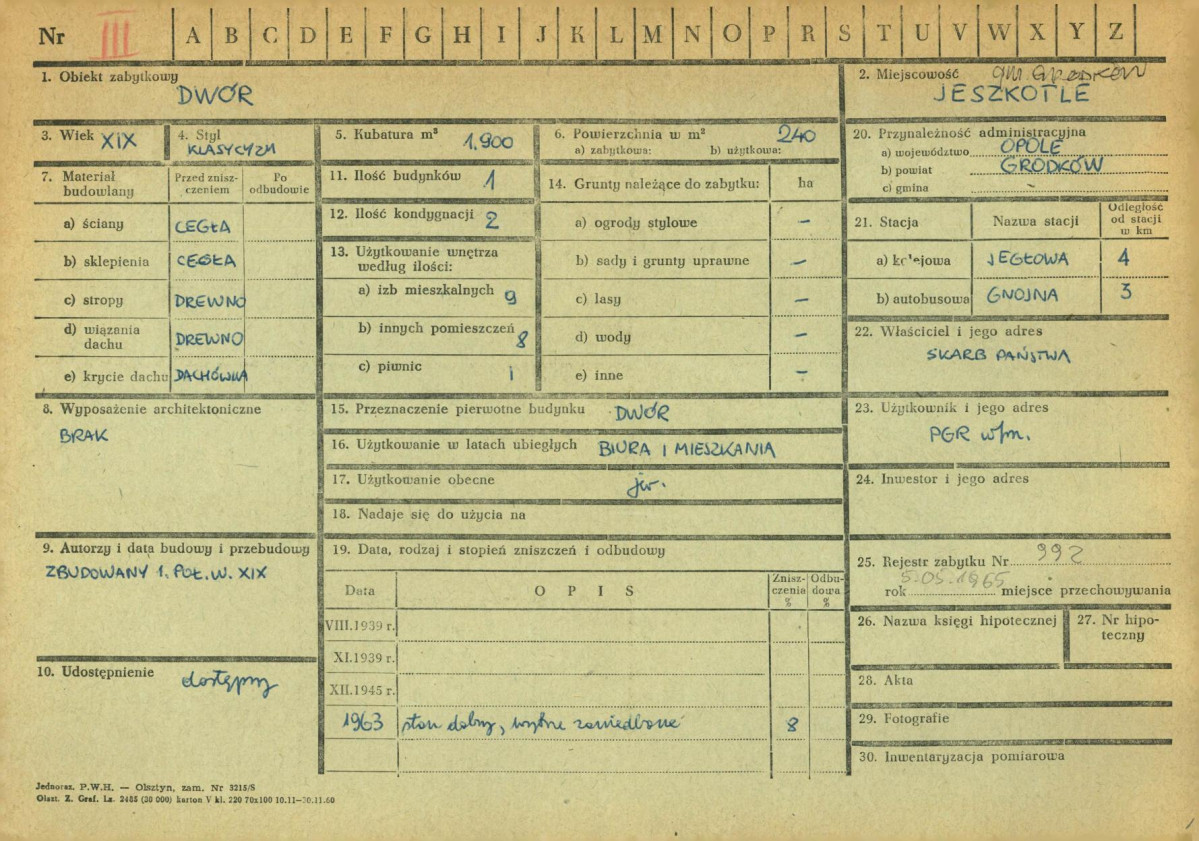 Nr III A B C D E F G H I J K L M N O P R S T U V W X Y Z
1. Obiekt zabytkowy
DWÓR
2. Miejscowość gm. GRODKÓW
JESZKOTLE
3. Wiek XIX
4. Styl
KLASYCYZM
5. Kubatura m³ 1.900
6. Powierzchnia w m² 240
a) zabytkowa: b) użytkowa:
7. Materiał budowlany
Przed zniszczeniem
Po odbudowie
a) ściany CEGŁA
b) sklepienia CEGŁA
c) stropy DREWNO
d) wiązania dachu DREWNO
e) krycie dachu DACHÓWKA
8. Wyposażenie architektoniczne
BRAK
9. Autorzy i data budowy i przebudowy
ZBUDOWANY 1. POŁ. W. XIX
10. Udostępnienie dostępny
11. Ilość budynków 1
12. Ilość kondygnacji 2
13. Użytkowanie wnętrza
według ilości:
a) izb mieszkalnych 9
b) innych pomieszczeń 8
c) piwnic 1
14. Grunty należące do zabytku: ha
a) ogrody stylowe –
b) sady i grunty uprawne –
c) lasy –
d) wody –
e) inne –
15. Przeznaczenie pierwotne budynku DWÓR
16. Użytkowanie w latach ubiegłych BIURA I MIESZKANIA
17. Użytkowanie obecne jw.
18. Nadaje się do użycia na
19. Data, rodzaj i stopień zniszczeń i odbudowy
Data OPIS Zniszczenia % Odbudowa %
VIII.1939 r.
XI.1939 r.
XII.1945 r.
1963 stan dobry, wnętrze zaniedbane 8
20. Przynależność administracyjna
a) województwo OPOLE
b) powiat GRODKÓW
c) gmina –
21. Stacja Nazwa stacji Odległość od stacji w km
a) kolejowa JEGŁOWA 4
b) autobusowa GNOJNA 3
22. Właściciel i jego adres
SKARB PAŃSTWA
23. Użytkownik i jego adres
PGR w/m.
24. Inwestor i jego adres
25. Rejestr zabytku Nr 992
rok 5.05.1965 miejsce przechowywania
26. Nazwa księgi hipotecznej
27. Nr hipoteczny
28. Akta
29. Fotografie
30. Inwentaryzacja pomiarowa
Jednoraz. P.W.H. — Olsztyn, zam. Nr 3215/S
Olszt. Z. Graf. Lz. 2485 (30 000) karton V kl. 220 70x100 10.11—30.11.60